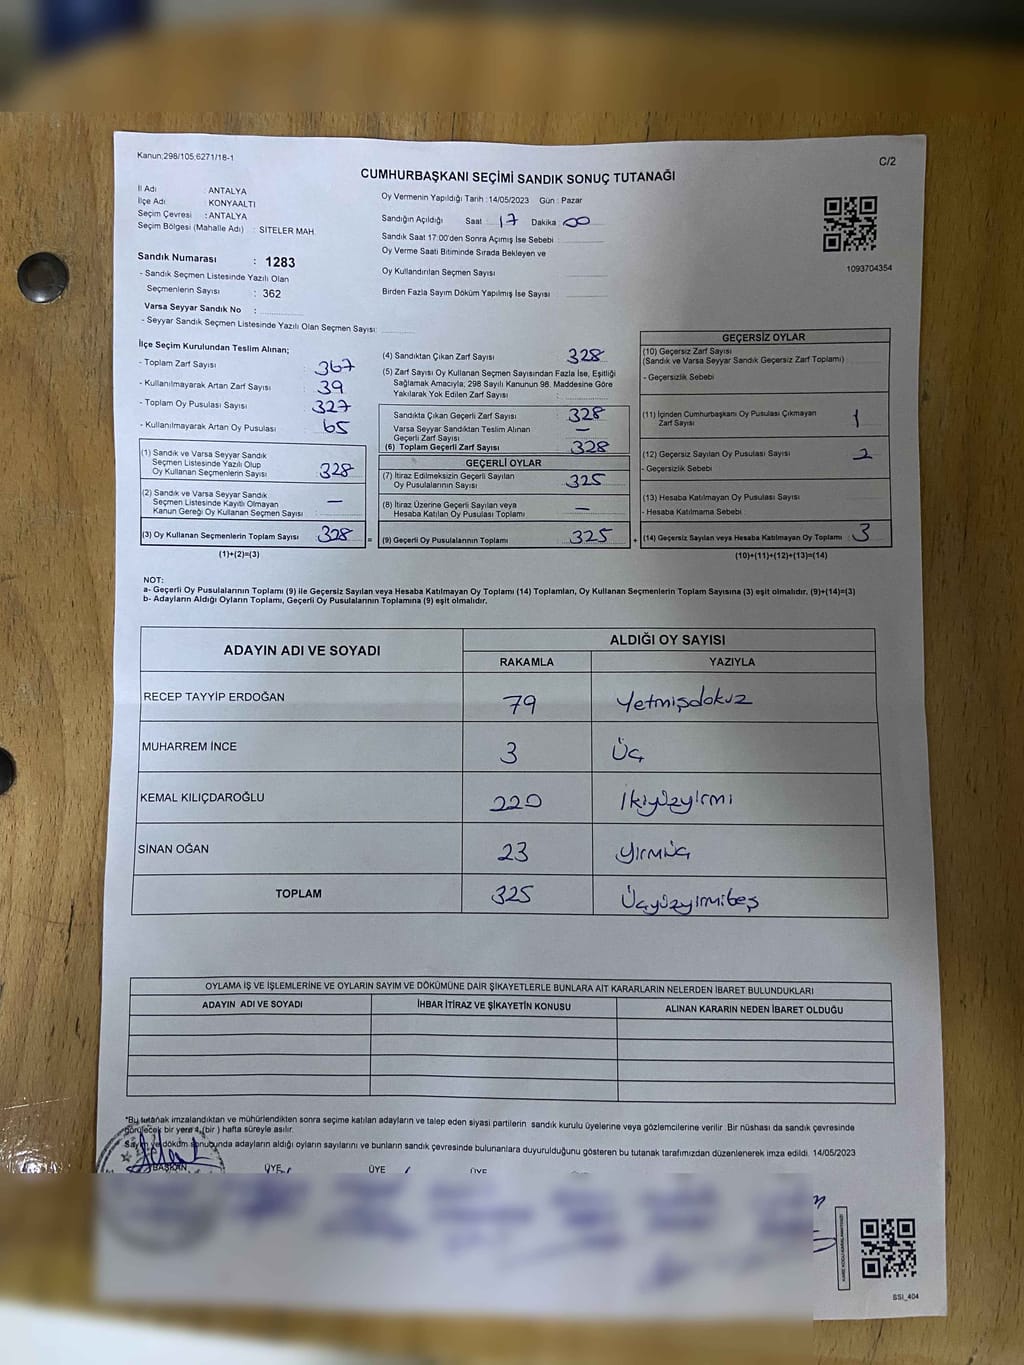 Kanun;298/105;6271/18-1
C/2
CUMHURBAŞKANI SEÇİMİ SANDIK SONUÇ TUTANAĞI
İl Adı : ANTALYA
İlçe Adı : KONYAALTI
Seçim Çevresi : ANTALYA
Seçim Bölgesi (Mahalle Adı) : SİTELER MAH
Oy Vermenin Yapıldığı Tarih : 14/05/2023 Gün : Pazar
Sandığın Açıldığı Saat 17 Dakika 00
Sandık Saat 17:00'den Sonra Açımış İse Sebebi :
Oy Verme Saati Bitiminde Sırada Bekleyen ve
Oy Kullandırılan Seçmen Sayısı
Birden Fazla Sayım Döküm Yapılmış İse Sayısı
1093704354
Sandık Numarası : 1283
- Sandık Seçmen Listesinde Yazılı Olan
Seçmenlerin Sayısı : 362
Varsa Seyyar Sandık No :
- Seyyar Sandık Seçmen Listesinde Yazılı Olan Seçmen Sayısı:
İlçe Seçim Kurulundan Teslim Alınan;
- Toplam Zarf Sayısı 367
- Kullanılmayarak Artan Zarf Sayısı 39
- Toplam Oy Pusulası Sayısı 327
- Kullanılmayarak Artan Oy Pusulası 65
(1) Sandık ve Varsa Seyyar Sandık
Seçmen Listesinde Yazılı Olup
Oy Kullanan Seçmenlerin Sayısı 328
(2) Sandık ve Varsa Seyyar Sandık
Seçmen Listesinde Kayıtlı Olmayan
Kanun Gereği Oy Kullanan Seçmen Sayısı : —
(3) Oy Kullanan Seçmenlerin Toplam Sayısı 328
(1)+(2)=(3)
(4) Sandıktan Çıkan Zarf Sayısı 328
(5) Zarf Sayısı Oy Kullanan Seçmen Sayısından Fazla İse, Eşitliği
Sağlamak Amacıyla; 298 Sayılı Kanunun 98. Maddesine Göre
Yakılarak Yok Edilen Zarf Sayısı :
Sandıkta Çıkan Geçerli Zarf Sayısı 328
Varsa Seyyar Sandıktan Teslim Alınan
Geçerli Zarf Sayısı —
(6) Toplam Geçerli Zarf Sayısı 328
GEÇERLİ OYLAR
(7) İtiraz Edilmeksizin Geçerli Sayılan
Oy Pusulalarının Sayısı 325
(8) İtiraz Üzerine Geçerli Sayılan veya
Hesaba Katılan Oy Pusulası Toplamı —
= (9) Geçerli Oy Pusulalarının Toplamı 325
GEÇERSİZ OYLAR
(10) Geçersiz Zarf Sayısı
(Sandık ve Varsa Seyyar Sandık Geçersiz Zarf Toplamı)
- Geçersizlik Sebebi
(11) İçinden Cumhurbaşkanı Oy Pusulası Çıkmayan
Zarf Sayısı 1
(12) Geçersiz Sayılan Oy Pusulası Sayısı 2
- Geçersizlik Sebebi
(13) Hesaba Katılmayan Oy Pusulası Sayısı
- Hesaba Katılmama Sebebi
+ (14) Geçersiz Sayılan veya Hesaba Katılmayan Oy Toplamı : 3
(10)+(11)+(12)+(13)=(14)
NOT:
a- Geçerli Oy Pusulalarının Toplamı (9) ile Geçersiz Sayılan veya Hesaba Katılmayan Oy Toplamı (14) Toplamları, Oy Kullanan Seçmenlerin Toplam Sayısına (3) eşit olmalıdır, (9)+(14)=(3)
b- Adayların Aldığı Oyların Toplamı, Geçerli Oy Pusulalarının Toplamına (9) eşit olmalıdır.
ADAYIN ADI VE SOYADI ALDIĞI OY SAYISI
RAKAMLA YAZIYLA
RECEP TAYYİP ERDOĞAN 79 Yetmişdokuz
MUHARREM İNCE 3 Üç
KEMAL KILIÇDAROĞLU 220 İkiyüzyirmi
SİNAN OĞAN 23 Yirmiüç
TOPLAM 325 Üçyüzyirmibeş
OYLAMA İŞ VE İŞLEMLERİNE VE OYLARIN SAYIM VE DÖKÜMÜNE DAİR ŞİKAYETLERLE BUNLARA AİT KARARLARIN NELERDEN İBARET BULUNDUKLARI
ADAYIN ADI VE SOYADI İHBAR İTİRAZ VE ŞİKAYETİN KONUSU ALINAN KARARIN NEDEN İBARET OLDUĞU
*Bu tutanak imzalandıktan ve mühürlendikten sonra seçime katılan adayların ve talep eden siyasi partilerin sandık kurulu üyelerine veya gözlemcilerine verilir. Bir nüshası da sandık çevresinde
görülecek bir yere 1 (bir ) hafta süreyle asılır.
Sayım ve döküm sonubunda adayların aldığı oyların sayılarını ve bunların sandık çevresinde bulunanlara duyurulduğunu gösteren bu tutanak tarafımızdan düzenlenerek imza edildi. 14/05/2023
BAŞKAN ÜYE ÜYE ÜYE
SSI_404